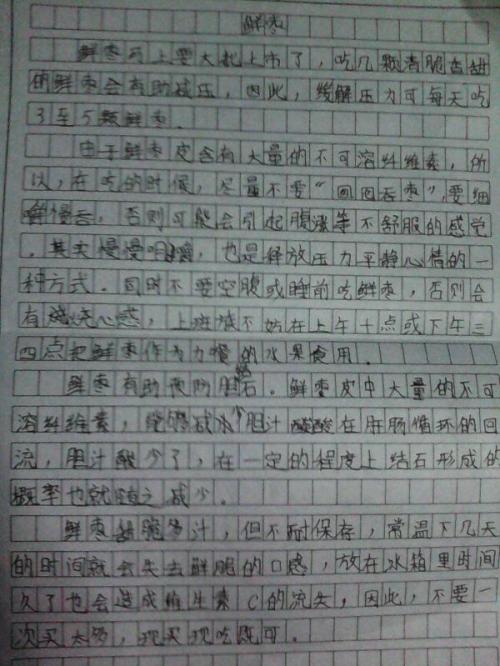 鲜枣
鲜枣马上要大批上市了，吃几颗香脆香甜
的鲜枣会有助减压，因此，缓解压力可每天吃
3至5颗鲜枣.
由于鲜枣皮含有大量的不可溶纤维素，所
以，在吃的时候，尽量不要“囫囵吞枣”，要细
嚼慢吞，否则可能会引起腹涨等不舒服的感觉
.其实慢慢咀嚼，也是释放压力平静心情的一
种方式.同时不要空腹或睡前吃鲜枣，否则会
有烧心感，上班族不妨在上午十点或下午三
四点把鲜枣作为加餐的水果食用.
鲜枣有助预防胆结石.鲜枣皮中大量的不可
溶纤维素，能够减少胆汁酸在肝肠循环的回
流，胆汁酸少了，在一定的程度上结石形成的
概率也就随之减少.
鲜枣甜脆多汁，但不耐保存，常温下几天
的时间就会失去鲜脆的口感，放在冰箱里时间
久了也会造成维生素C的流失，因此，不要一
次买太多，现买现吃既可.